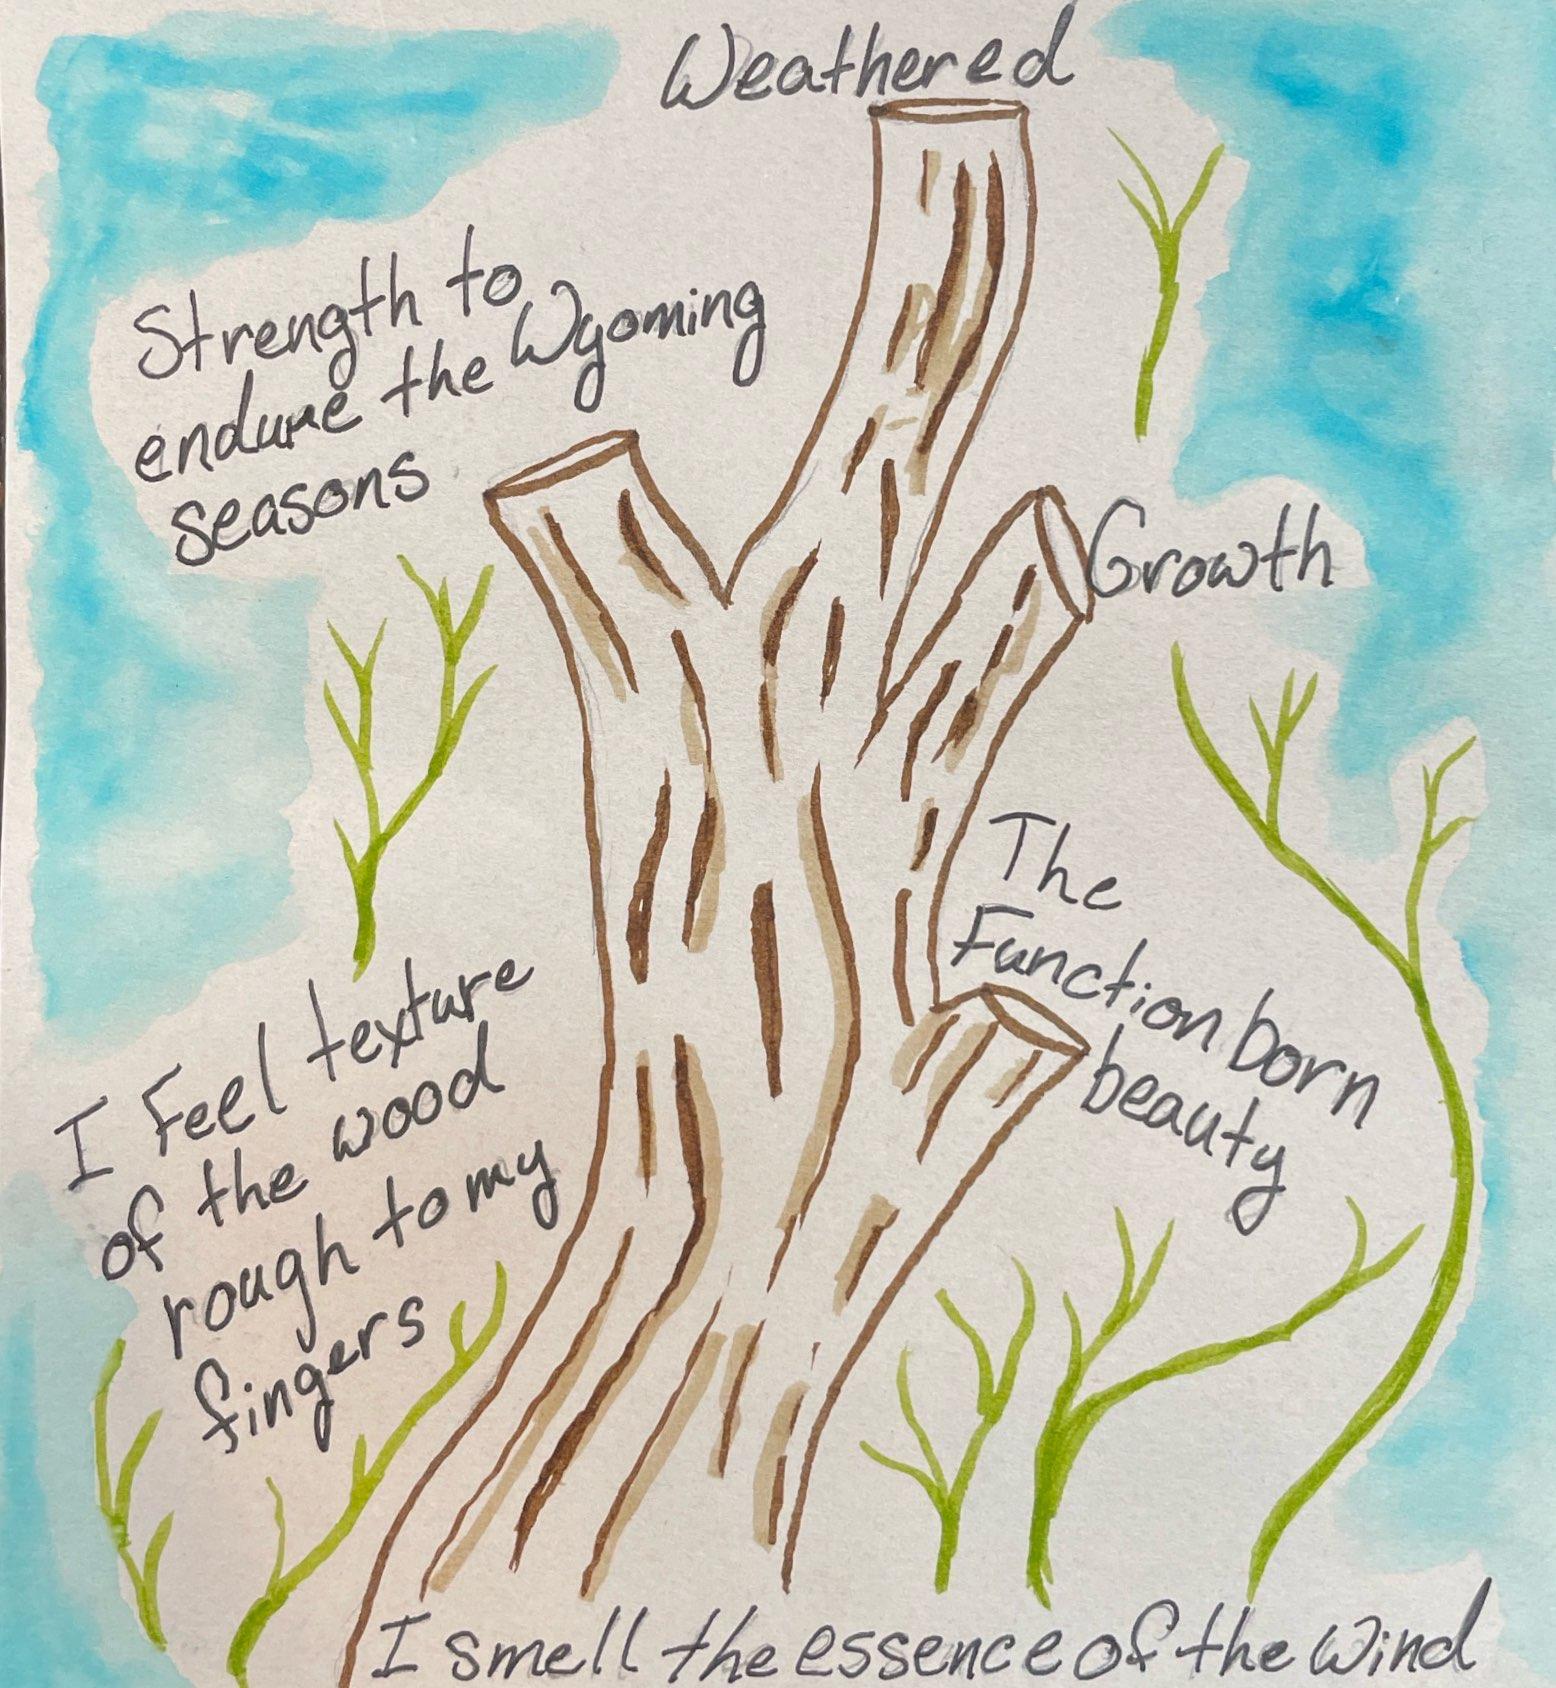 Weathered
Strength to
endure the Wyoming
seasons
Growth
The
Function born
beauty
I Feel texture
of the wood
rough to my
fingers
I smell the essence of the wind